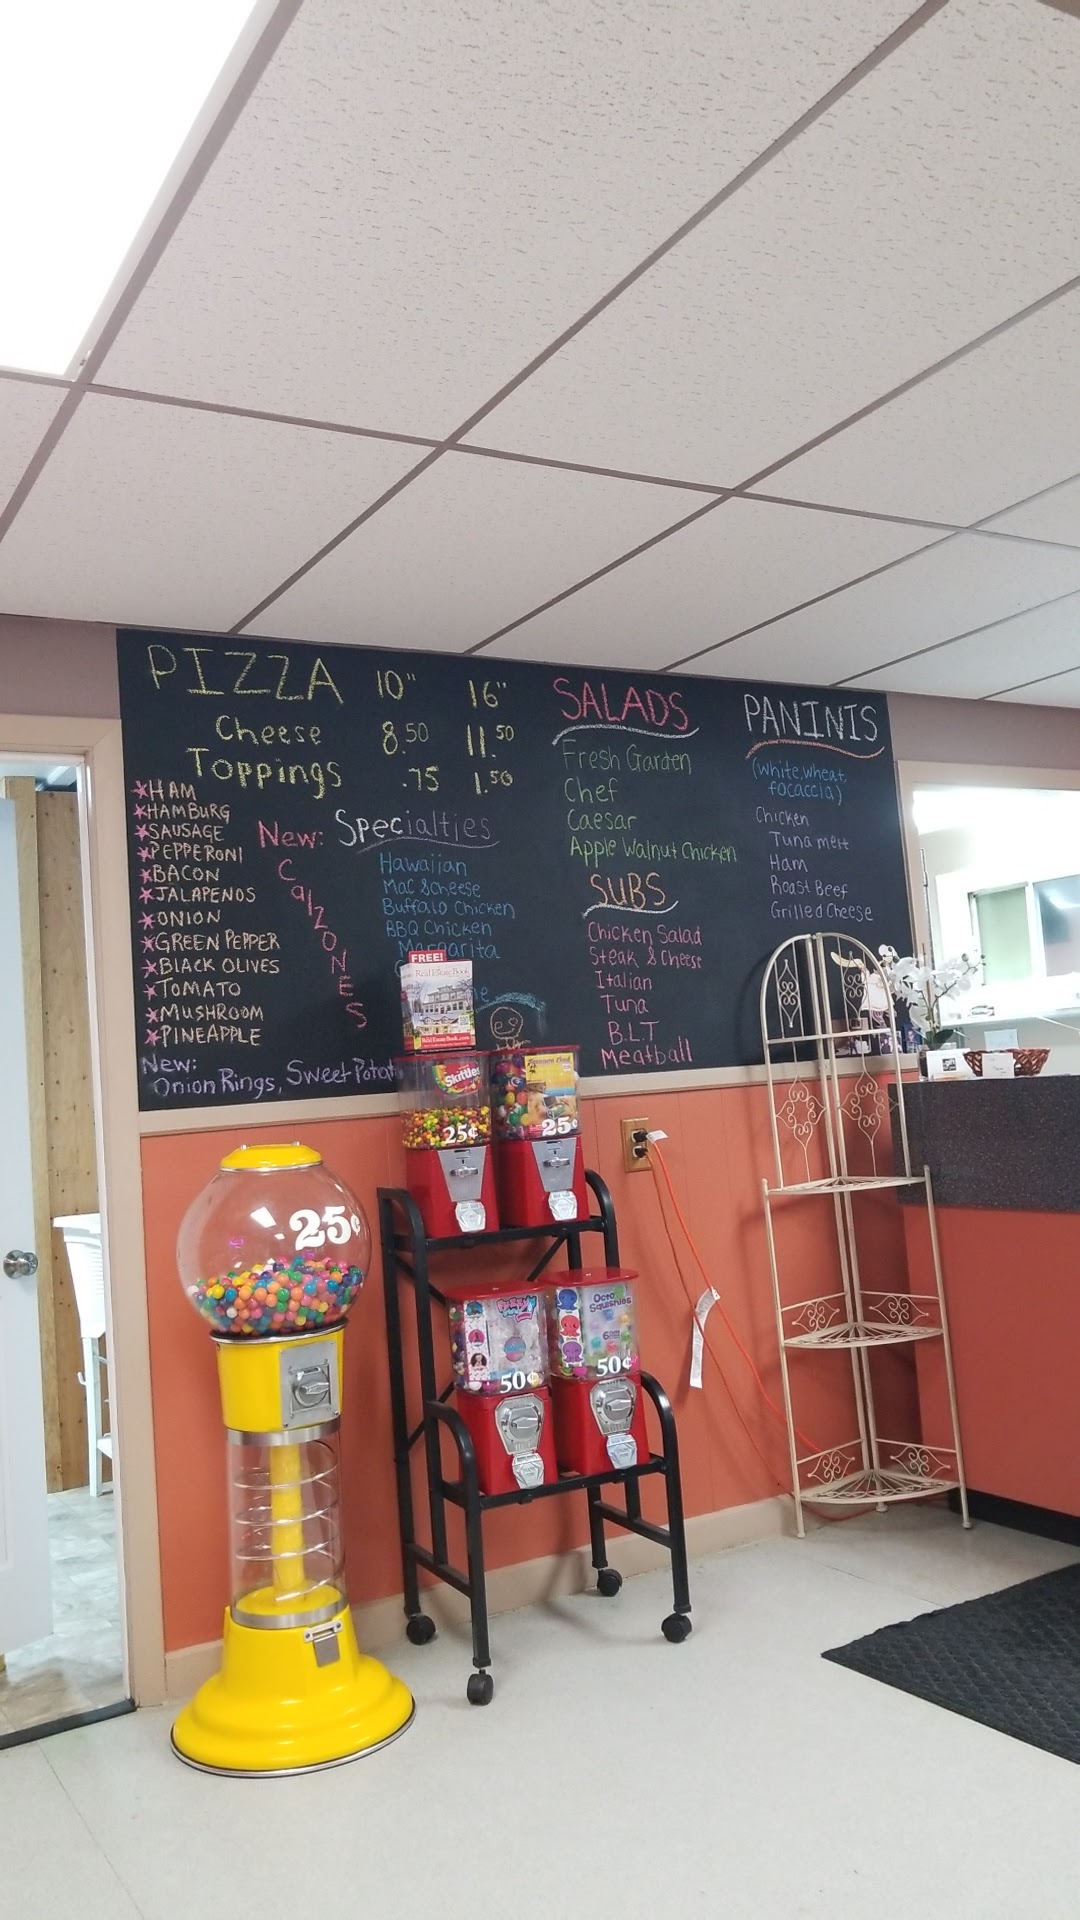 PIZZA 10" 16"
Cheese 8.50 11.50
Toppings .75 1.50
*HAM
*HAMBURG
*SAUSAGE
*PEPPERONI
*BACON
*JALAPENOS
*ONION
*GREEN PEPPER
*BLACK OLIVES
*TOMATO
*MUSHROOM
*PINEAPPLE
New:
Onion Rings, Sweet Potat
New:
CalZONES
Specialties
Hawaiian
Mac & cheese
Buffalo Chicken
BBQ Chicken
Margarita
SALADS
Fresh Garden
Chef
Caesar
Apple Walnut Chicken
SUBS
Chicken Salad
Steak & Cheese
Italian
Tuna
B.L.T
Meatball
PANINIS
(white, wheat,
focaccia)
Chicken
Tuna melt
Ham
Roast Beef
Grilled Cheese
FREE!
Real Estate Book
RealEstateBook.com
Skittles
25¢
25¢
25¢
50¢
Octo
Squishies
50¢